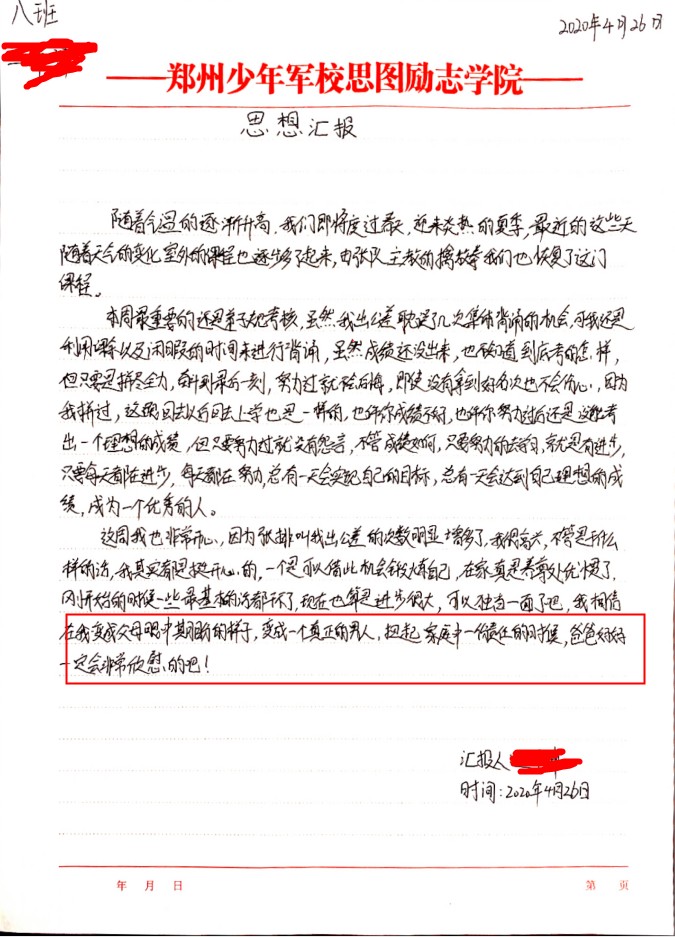 八班
2020年4月26日
郑州少年军校思图励志学院
思想汇报
随着气温的逐渐升高,我们即将度过春天,迎来炎热的夏季,最近的这些天
随着天气的变化室外的课程也逐步多了起来,由张队主教的擒敌拳我们也恢复了这门
课程。
本周最重要的还是弟子规考核,虽然我出公差耽误了几次集体背诵的机会,可我还是
利用课余以及闲暇的时间来进行背诵,虽然成绩还没出来,也不知道到底考的怎样,
但只要是拼尽全力,奋斗到最后一刻,努力过就不后悔,即使没有拿到好名次也不会伤心,因为
我拼过,这跟回去以后回去上学也是一样的,也许你成绩不好,也许你努力过后还是没能考
出一个理想的成绩,但只要努力过就没有怨言,不管成绩如何,只要努力的去学习,就是有进步,
只要每天都在进步,每天都在努力,总有一天会实现自己的目标,总有一天会达到自己理想的成
绩,成为一个优秀的人。
这周我也非常开心,因为张排叫我出公差的次数明显增多了,我很高兴,不管是干什么
样的活,我其实都是挺开心的,一是可以借此机会锻炼自己,在家真是养尊处优惯了,
刚开始的时候一些最基本的活都不了,现在也算是进步很大,可以独当一面了吧,我相信
在我变成父母眼中期盼的样子,变成一个真正的男人,担起家庭中一份责任的时候,爸爸妈妈
一定会非常欣慰的吧!
汇报人
时间:2020年4月26日
年 月 日 第 页